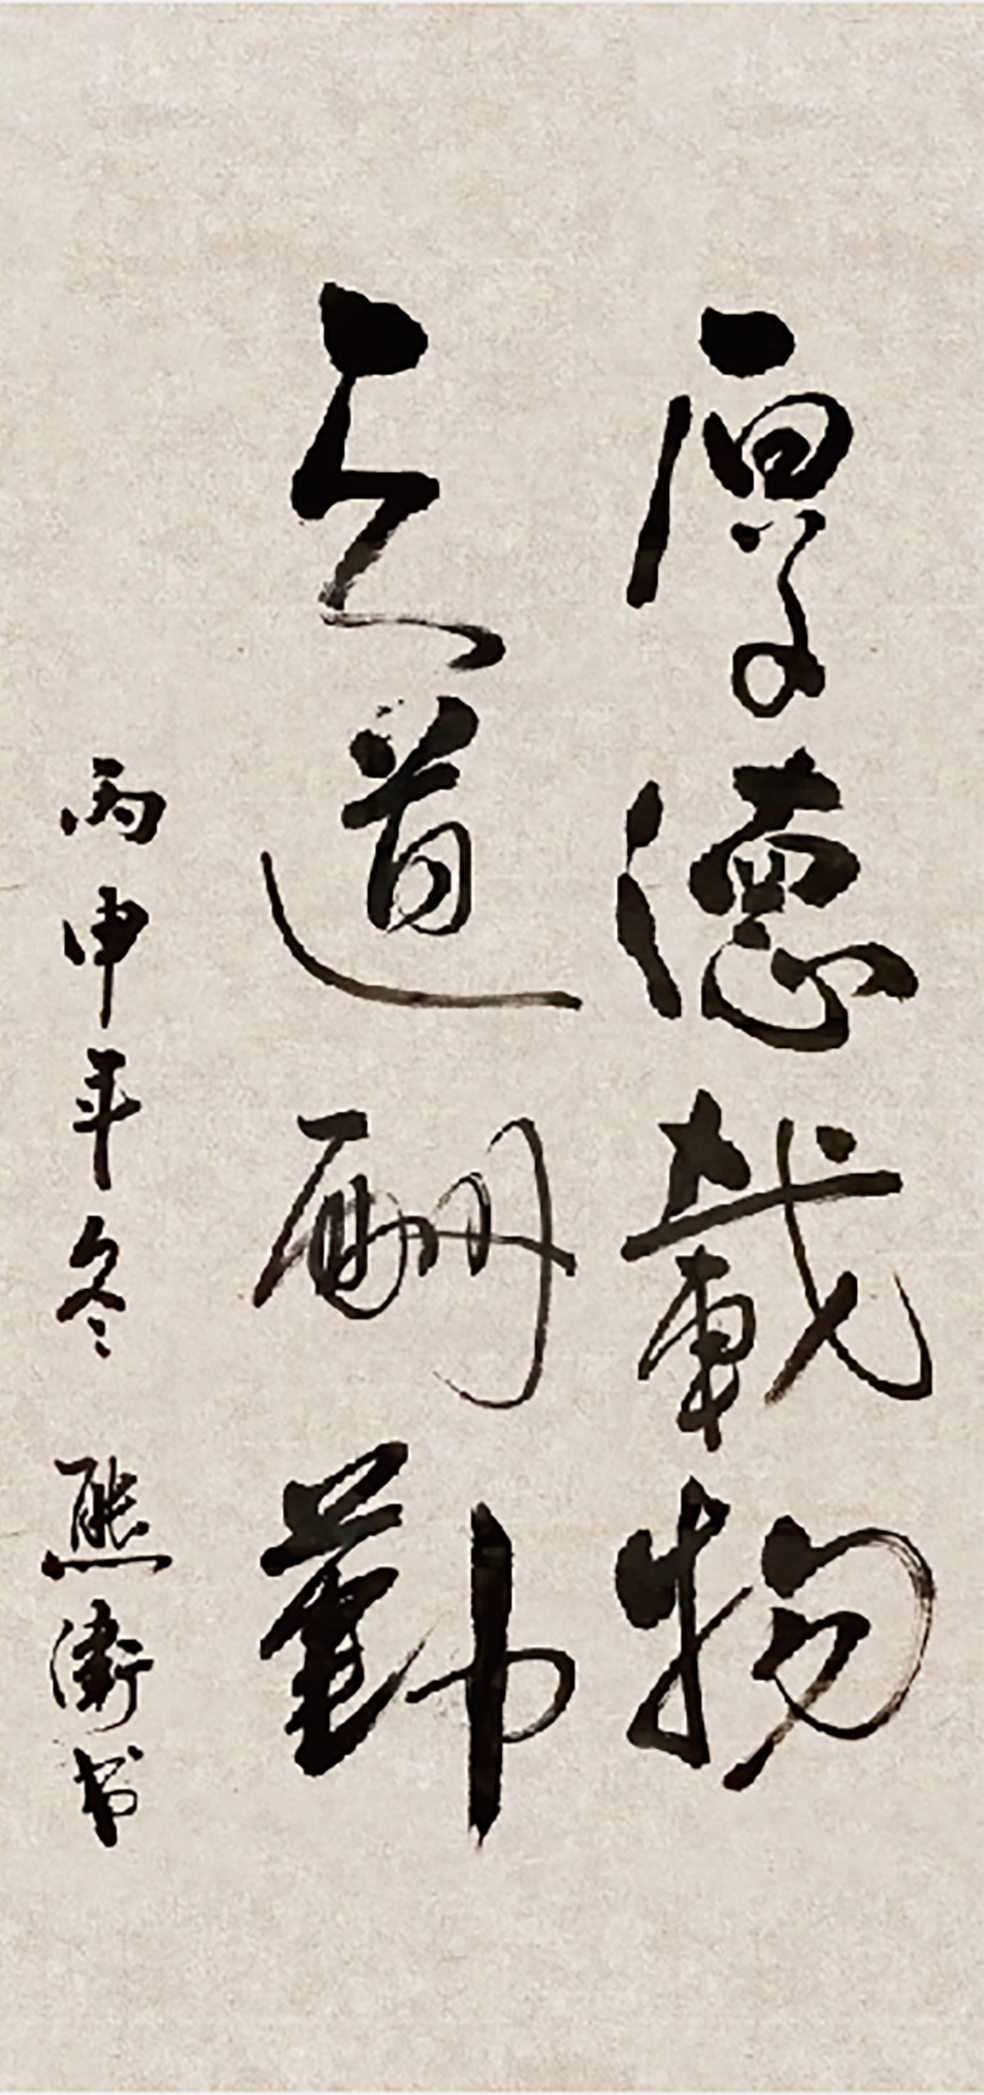 厚德載物
天道酬勤
丙申年冬 熊衛书